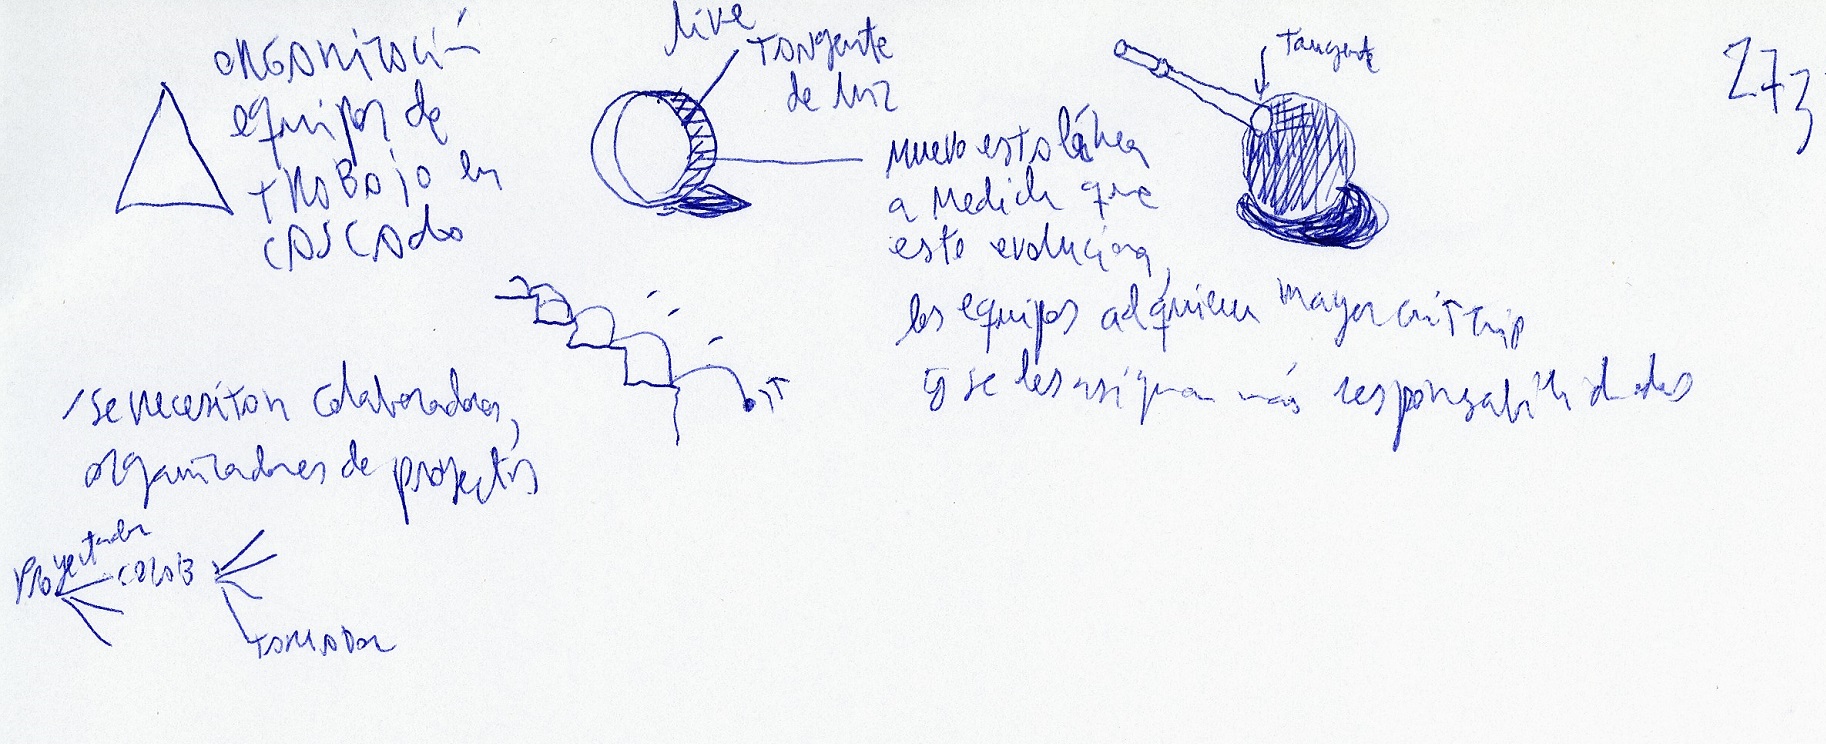 273
ORGANIZACIÓN
equipos de
TRABAJO en
CASCADA
live
TANgente
de luz
Tangente
Muevo esta línea
a medida que
este evoluciona,
los equipos adquieren mayor criterio
y se les asignan más responsabilidades
T
se necesitan colaboradores,
organizadores de proyectos
Proyectador
COLAB